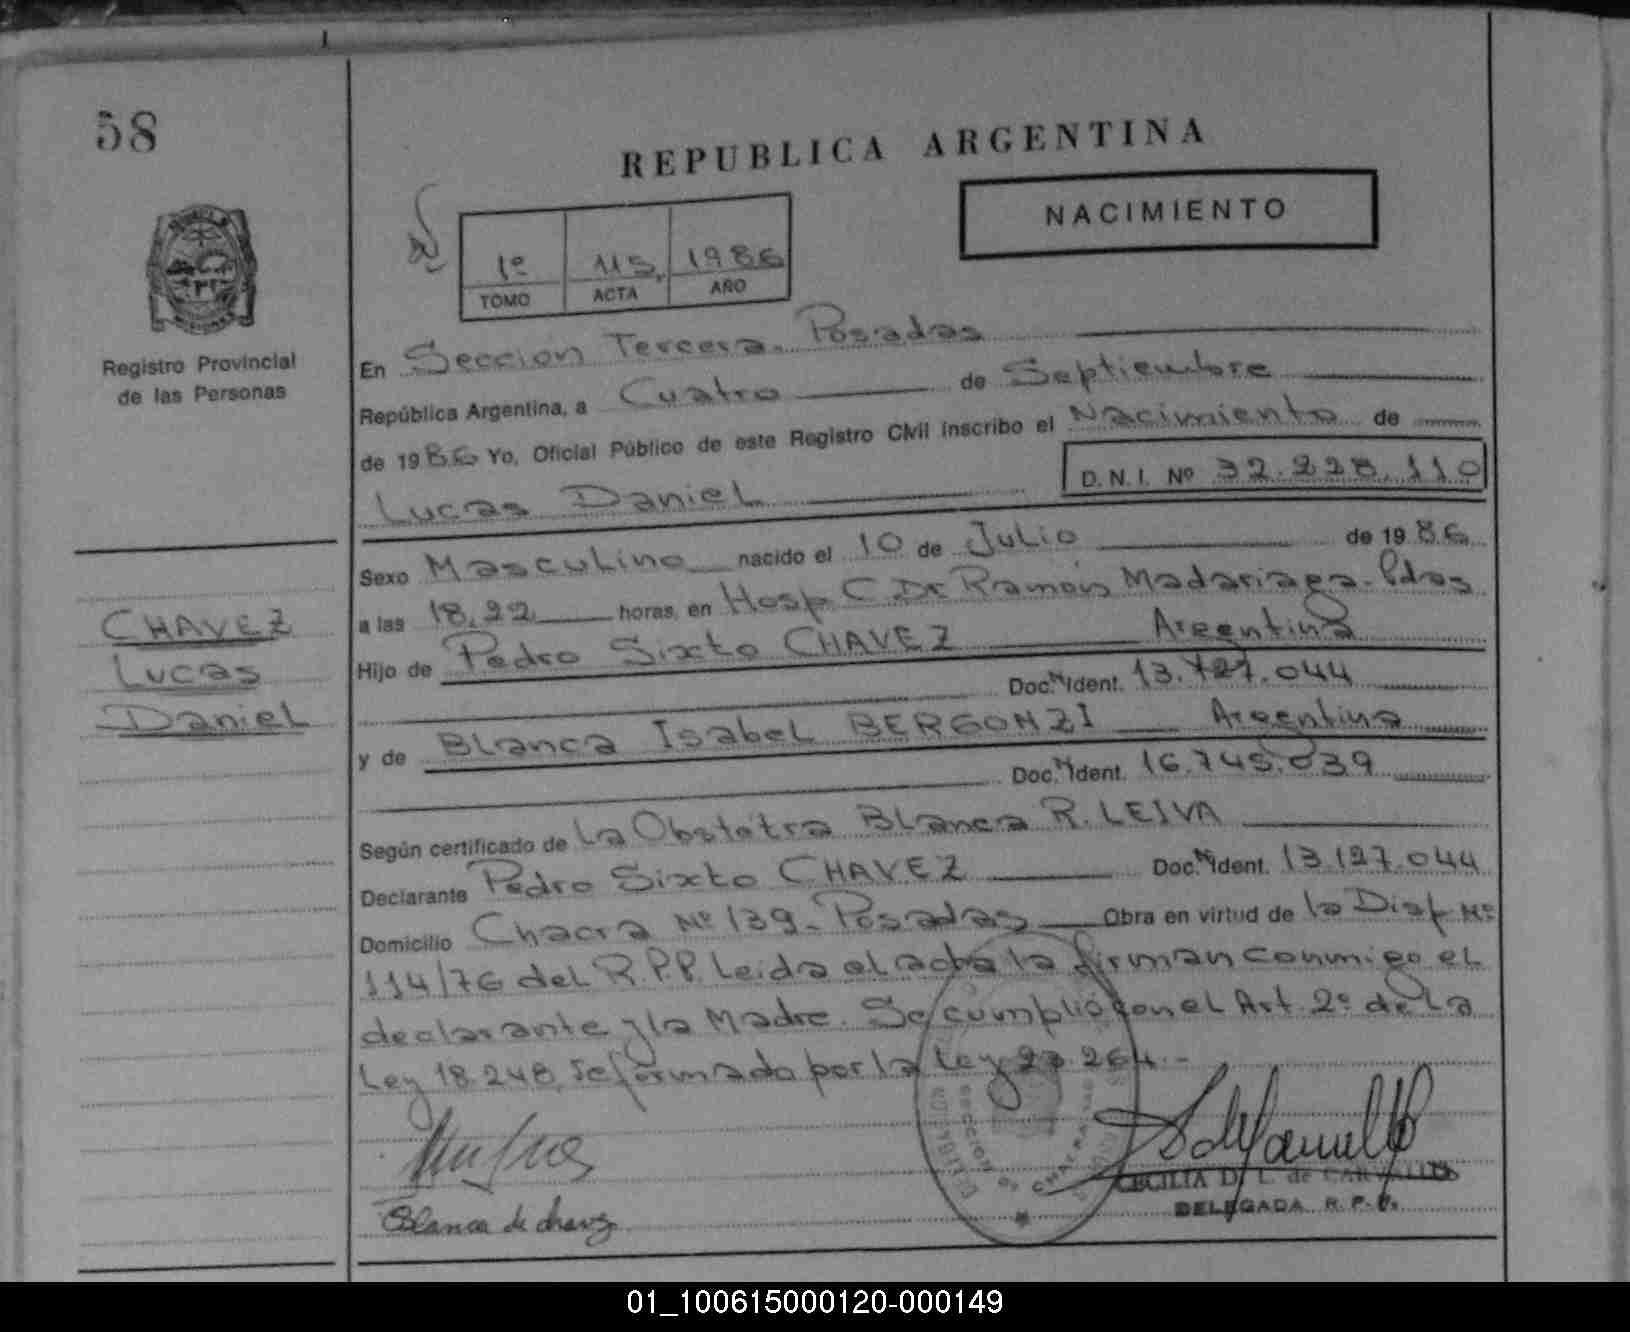 58
REPUBLICA ARGENTINA
NACIMIENTO
1º 115, 1986
TOMO ACTA AÑO
Registro Provincial
de las Personas
En Sección Tercera. Posadas
República Argentina, a Cuatro de Septiembre
de 1986 Yo, Oficial Público de este Registro Civil inscribo el Nacimiento de
Lucas Daniel D.N.I. Nº 32.228.110
Sexo Masculino nacido el 10 de Julio de 1986
a las 18,22 horas, en Hosp C. Dr Ramón Madariaga. Pdas
Hijo de Pedro Sixto CHAVEZ Argentina
Doc. Ident. 13.727.044
y de Blanca Isabel BERGONZI Argentina
Doc. Ident. 16.745.039
Según certificado de La Obstetra Blanca R. LEIVA
Declarante Pedro Sixto CHAVEZ Doc. Ident. 13.127.044
Domicilio Chacra Nº 139. Posadas Obra en virtud de la Disp. Nº
114/76 del R.P.P. Leida el acta la firman conmigo el
declarante y la Madre. Se cumplió con el Art. 2º de La
Ley 18.248, reformado por la Ley 23.264.-
CHAVEZ
Lucas
Daniel
Blanca de Chavez
CECILIA D. L. de
DELEGADA R.P.P.
01_100615000120-000149